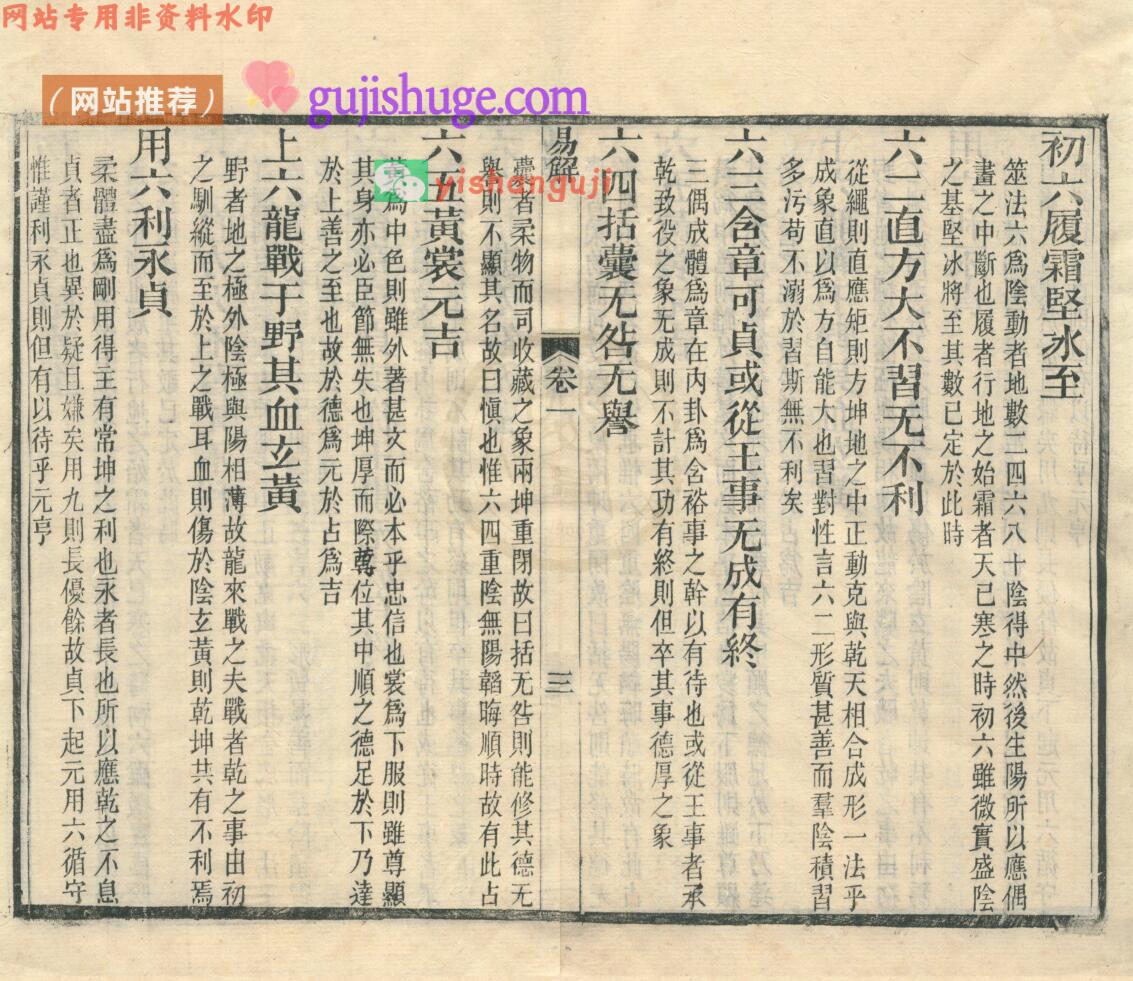 网站专用非资料水印
（网站推荐）
gujishuge.com
yishanguji
初六履霜堅冰至
筮法六爲陰動者地數二四六八十陰得中然後生陽所以應偶
畫之中斷也履者行地之始霜者天已寒之時初六雖微實盛陰
之基堅冰將至其數已定於此時
六二直方大不習无不利
從繩則直應矩則方坤地之中正動克與乾天相合成形一法乎
成象直以爲方自能大也習對性言六二形質甚善而羣陰積習
多污苟不溺於習斯無不利矣
六三含章可貞或從王事无成有終
三偶成體爲章在內卦爲含裕事之幹以有待也或從王事者承
乾致役之象无成則不計其功有終則但卒其事德厚之象
六四括囊无咎无譽
易解
卷一
三
囊者柔物而司收藏之象兩坤重閉故曰括无咎則能修其德无
譽則不顯其名故曰愼也惟六四重陰無陽韜晦順時故有此占
六五黃裳元吉
爲中色則雖外著甚文而必本乎忠信也裳爲下服則雖尊顯
其身亦必臣節無失也坤厚而際尊位其中順之德足於下乃達
於上善之至也故於德爲元於占爲吉
上六龍戰于野其血玄黃
野者地之極外陰極與陽相薄故龍來戰之夫戰者乾之事由初
之馴縱而至於上之戰耳血則傷於陰玄黃則乾坤共有不利焉
用六利永貞
柔體盡爲剛用得主有常坤之利也永者長也所以應乾之不息
貞者正也異於疑且嫌矣用九則長優餘故貞下起元用六循守
惟謹利永貞則但有以待乎元亨